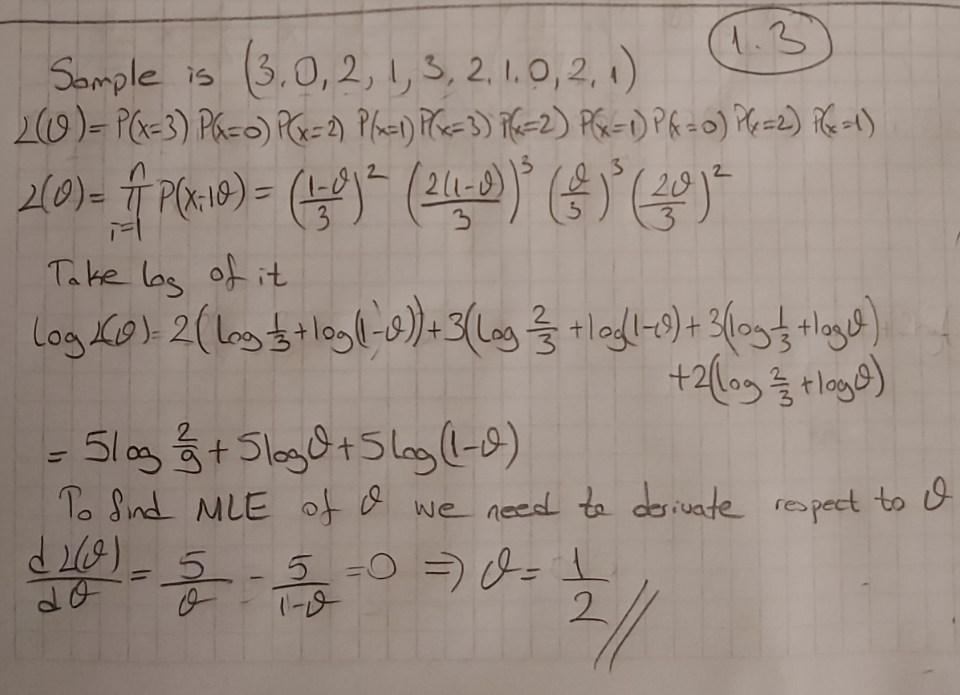 1.3
Sample is (3,0,2,1,3,2,1,0,2,1)
L(θ)=P(x=3) P(x=0) P(x=2) P(x=1) P(x=3) P(x=2) P(x=1) P(x=0) P(x=2) P(x=1)
L(θ)= ∏_{i=1}^{n} P(x_i|θ) = ((1-θ)/3)^2 (2(1-θ)/3)^3 (θ/3)^3 (2θ/3)^2
Take log of it
log L(θ)= 2(log 1/3 + log(1-θ)) + 3(log 2/3 + log(1-θ) + 3(log 1/3 + logθ)
+2(log 2/3 + logθ)
= 5log 2/9 + 5logθ + 5log(1-θ)
To find MLE of θ we need to derivate respect to θ
dL(θ)/dθ = 5/θ - 5/(1-θ) = 0 ⇒ θ = 1/2 //